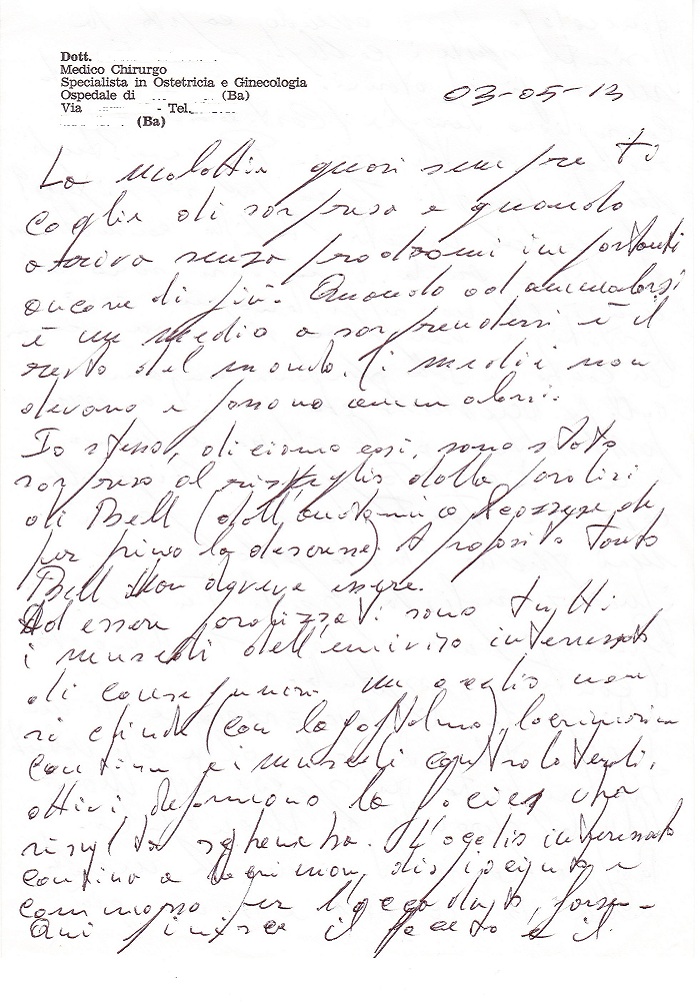 Dott.
Medico Chirurgo
Specialista in Ostetricia e Ginecologia
Ospedale di (Ba)
Via - Tel.
(Ba)
03-05-13
La malattia quasi sempre ti
coglie di sorpresa e quando
arriva senza prodromi importanti
ancora di più. Quando ad ammalarsi
è un medico a sorprendersi è il
resto del mondo. I medici non
devono e possono ammalarsi.
Io stesso, diciamo così, sono stato
sorpreso al risveglio dalla paralisi
di Bell (dall'anatomico scozzese che
per primo la descrisse). A proposito tanto
Bell non doveva essere.
Ad essere paralizzati sono tutti
i muscoli dell'emiviso interessato
di conseguenza un occhio non
si chiude (con lagoftalmo), lacrimazione
continua e i muscoli controlaterali,
attivi deformano la faccia che
risulta sghemba. L'occhio interessato
continua a lacrimare, dispiaciuto e
commosso per l'accaduto, forse.
Qui finisce il fatto e il